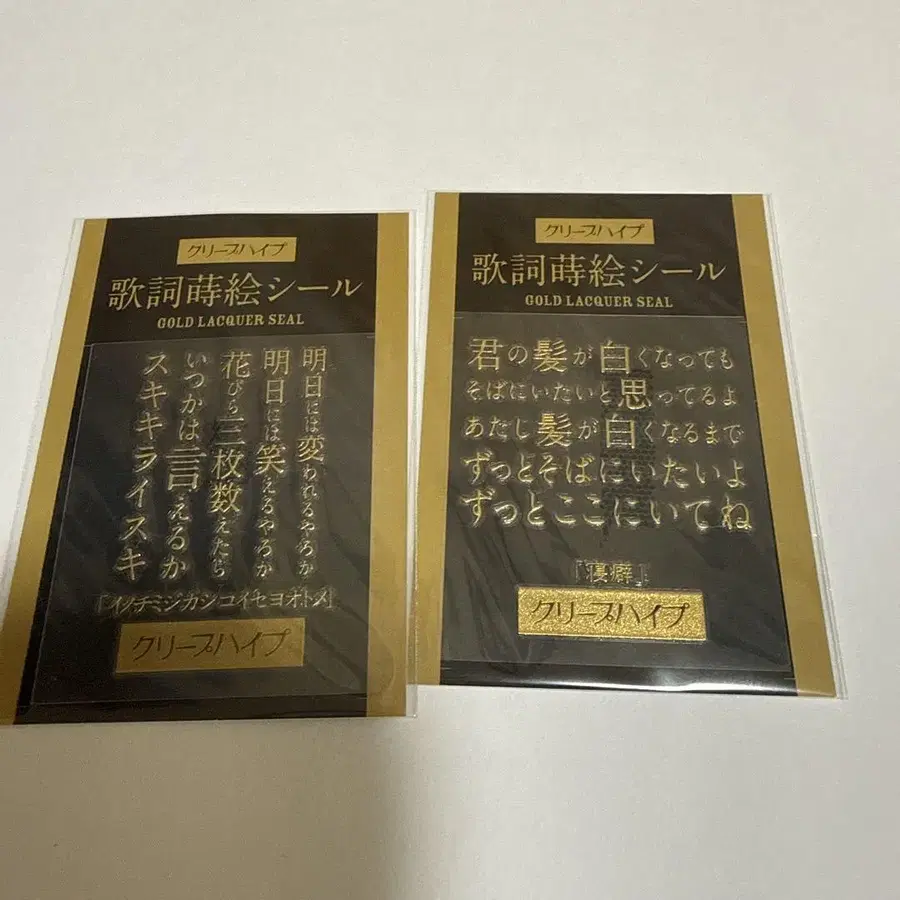 クリープハイプ
歌詞蒔絵シール
GOLD LACQUER SEAL
明日には変われるやろか
明日には笑えるやろか
花びら三枚数えたら
いつかは言えるか
スキキライスキ
『イノチミジカシコイセヨオトメ』
クリープハイプ
クリープハイプ
歌詞蒔絵シール
GOLD LACQUER SEAL
君の髪が白くなっても
そばにいたいと思ってるよ
あたし髪が白くなるまで
ずっとそばにいたいよ
ずっとここにいてね
『寝癖』
クリープハイプ